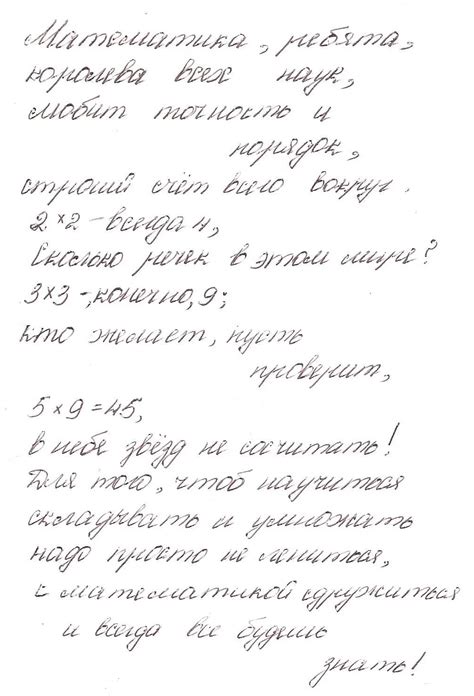 Математика, ребята,
королева всех наук,
любит точность и
порядок,
строгий счёт всего вокруг.
2×2 - всегда 4,
Сколько речек в этом мире?
3×3 -, конечно, 9;
кто желает, пусть
проверит,
5×9=45,
в небе звёзд не сосчитать!
Для того, чтоб научиться
складывать и умножать
надо просто не лениться,
с математикой сдружиться
и всегда все будешь
знать!